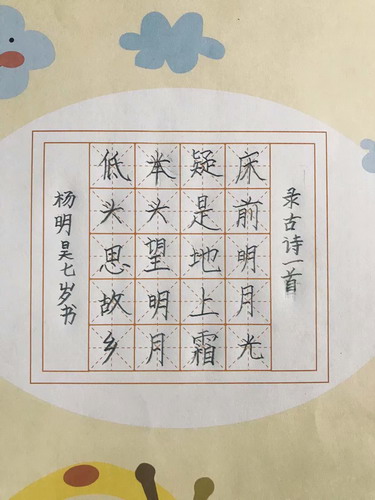 录古诗一首
床前明月光
疑是地上霜
举头望明月
低头思故乡
杨明昊七岁书